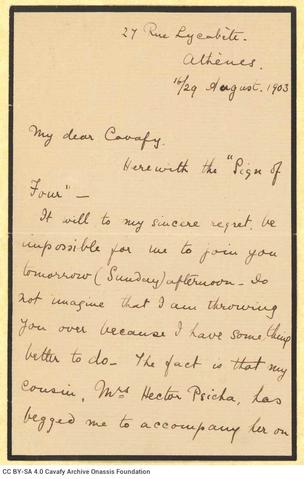 27 Rue Lycabète.
Athènes.
16/29 August. 1903
My dear Cavafy.
Herewith the "Sign of
Four" —
It will to my sincere regret, be
impossible for me to join you
tomorrow (Sunday) afternoon - Do
not imagine that I am throwing
you over because I have something
better to do - The fact is that my
cousin, Mrs Hector Psicha, has
begged me to accompany her on
CC BY-SA 4.0 Cavafy Archive Onassis Foundation